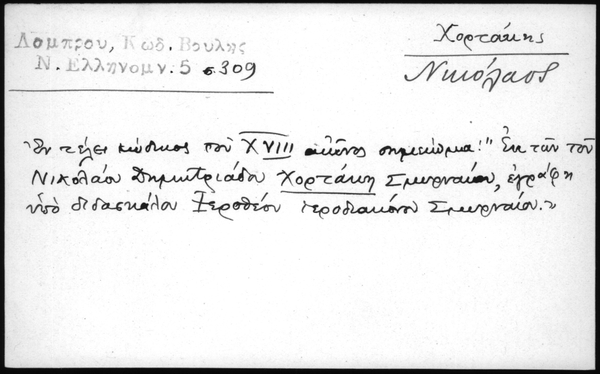 Λάμπρου, Κώδ. Βουλης
Ν. Ελληνομν. 5 σ. 309
Χορτάκης
Νικόλαος
Ἐν τέλει κώδικος τοῦ XVIII αἰῶνος σημείωμα: "Ἐκ τῶν τοῦ
Νικολάου Δημητριάδου Χορτάκη Σμυρναίου, ἐγράφη
ὑπὸ διδασκάλου Ἱεροθέου ἱεροδιακόνου Σμυρναίου."